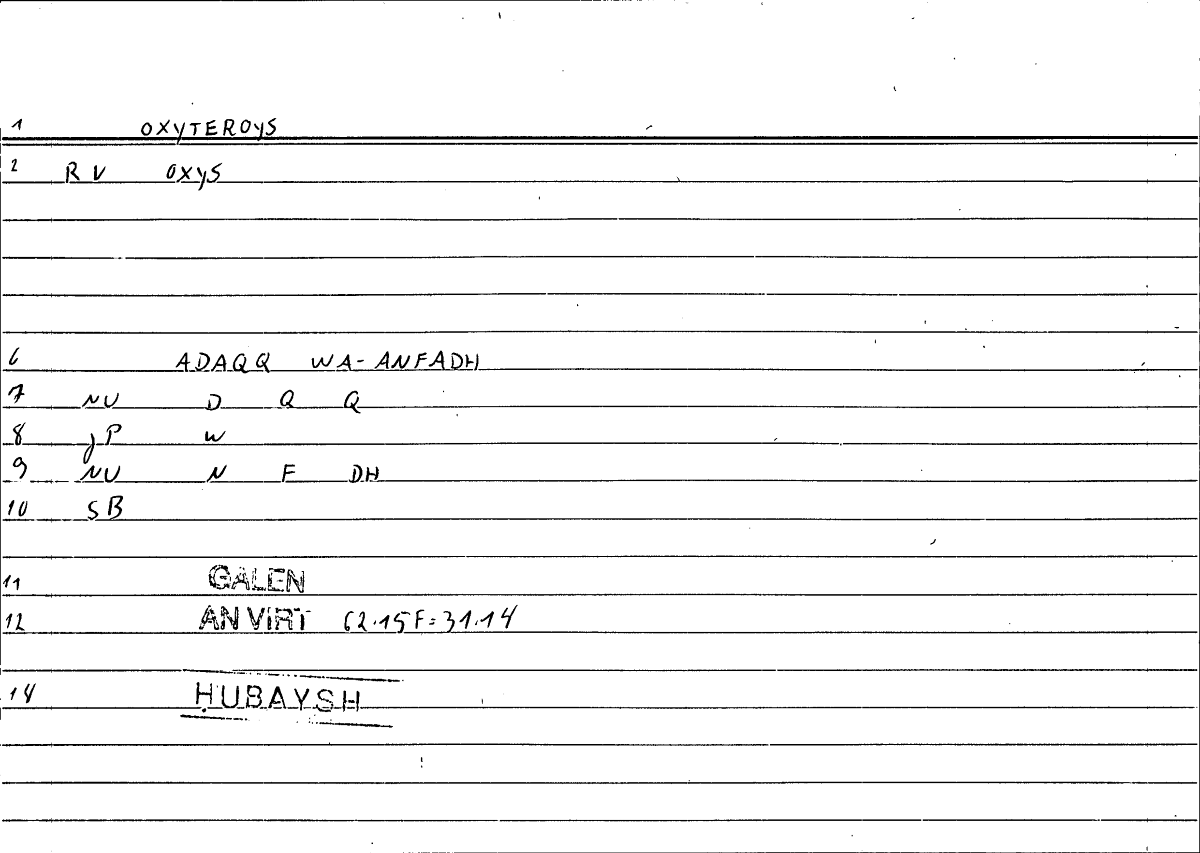 1 OXYTEROYS
2 RV OXYS
6 ADAQQ WA-ANFADH
7 NU D Q Q
8 JP W
9 NU N F DH
10 SB
11 GALEN
12 AN VIRT 62.15F=31.14
14 ḤUBAYSH